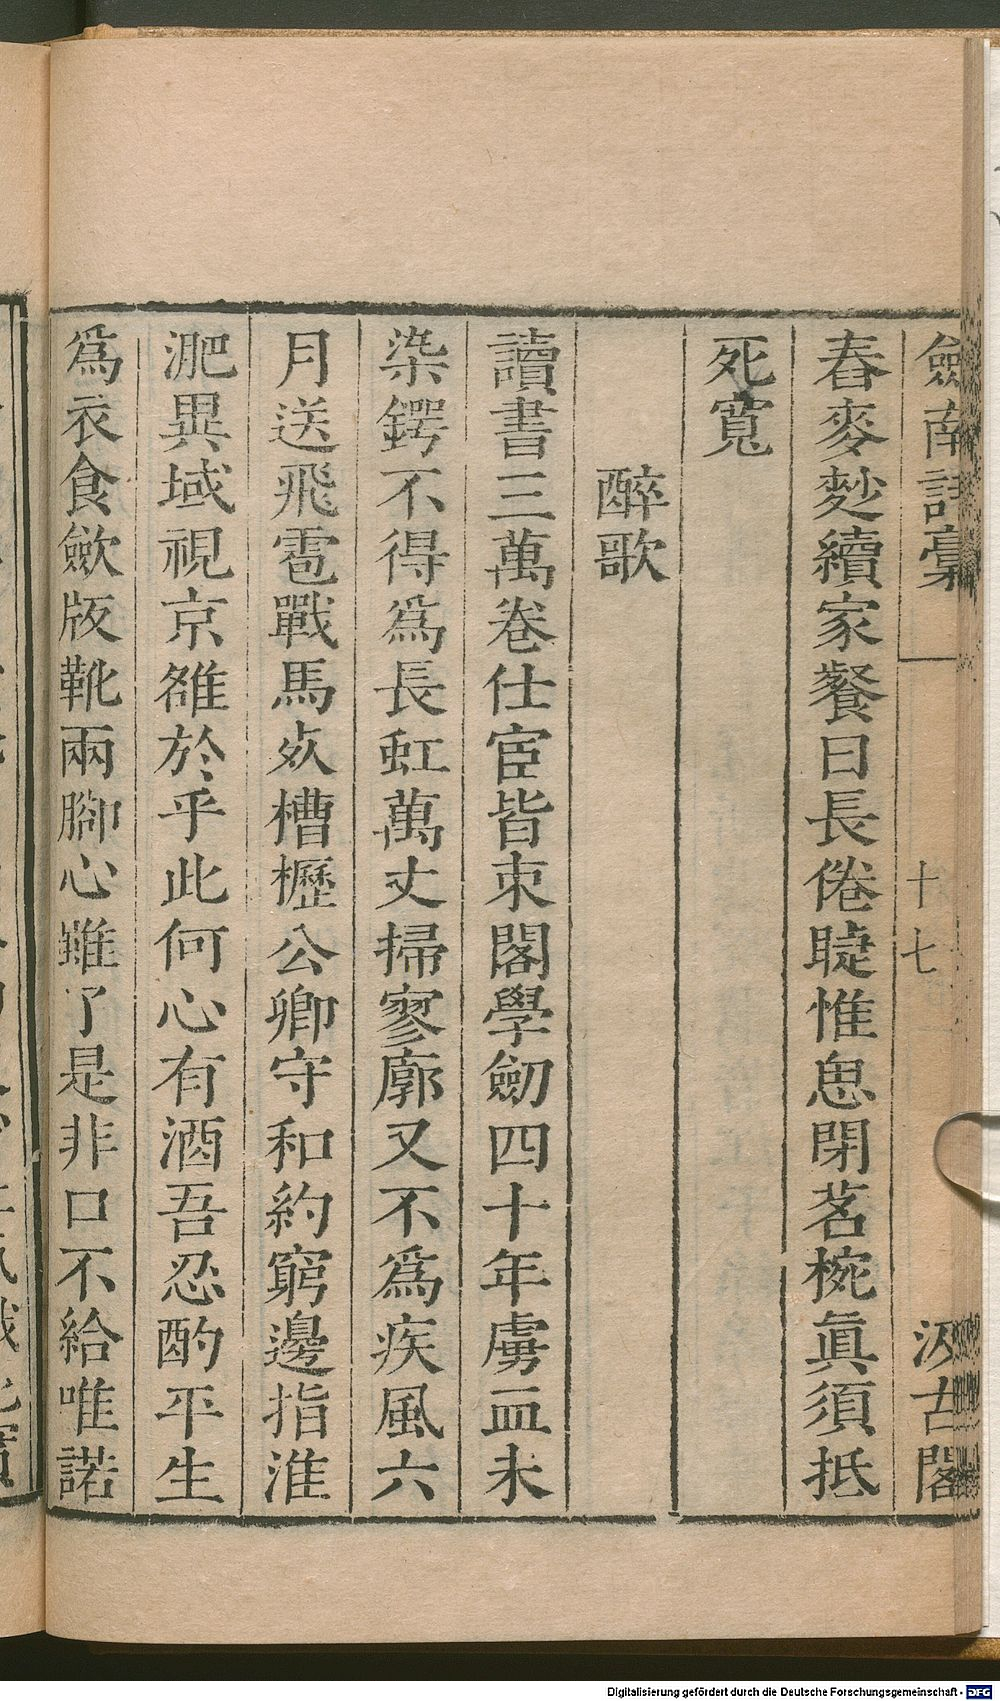 劎南詩稾 十七 汲古閣
春麥麨續家餐日長倦睫惟思閉茗椀眞須抵
死寬
醉歌
讀書三萬卷仕宦皆束閣學劎四十年虜血未
染鍔不得爲長虹萬丈掃寥廓又不爲疾風六
月送飛雹戰馬死槽櫪公卿守和約窮邊指淮
淝異域視京雒於乎此何心有酒吾忍酌平生
爲衣食歛版靴兩脚心雖了是非口不給唯諾
Digitalisierung gefördert durch die Deutsche Forschungsgemeinschaft - DFG